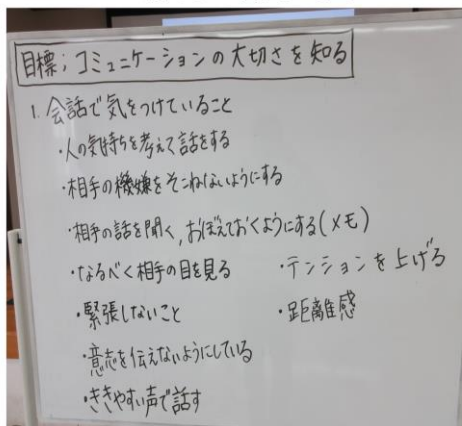 目標；コミュニケーションの大切さを知る
1. 会話で気をつけていること
・人の気持ちを考えて話をする
・相手の機嫌をそこねないようにする
・相手の話を聞く，おぼえておくようにする(メモ)
・なるべく相手の目を見る
・テンションを上げる
・緊張しないこと
・距離感
・意志を伝えないようにしている
・ききやすい声で話す